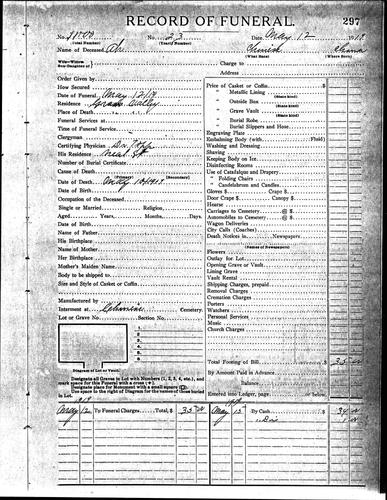 RECORD OF FUNERAL. 297
No. (Total Number) No. 23 (Yearly Number) Date May 12 1918
Name of Deceased Ah Chinese (What Race) China (Where Born)
Wife—Widow
Son—Daughter of Charge to
Address
Order Given by
How Secured
Date of Funeral May 12/18
Residence Grass Valley
Place of Death
Funeral Services at
Time of Funeral Service
Clergyman
Certifying Physician
His Residence
Number of Burial Certificate
Cause of Death
(Primary) (Secondary)
Date of Death
Occupation of the Deceased
Single or Married Religion,
Aged Years, Months, Days.
Date of Birth
Name of Father
His Birthplace
Name of Mother
Her Birthplace
Mother's Maiden Name
Body to be shipped to
Size and Style of Casket or Coffin
Manufactured by
Interment at Chinese Cemetery.
Lot or Grave No. Section No.
1.
2.
3.
4.
5.
Diagram of Lot or Vault.
Designate all Graves in Lot with Numbers (1, 2, 3, 4, etc.), and
mark space for this Funeral with a cross (+)
Designate place for Monument with a small square
Use space to right of Diagram for names of those buried
in Lot.
Price of Casket or Coffin
(State kind)
" Metallic Lining
" Outside Box
(State kind)
" Grave Vault
(State kind)
" Burial Robe
" Burial Slippers and Hose
Engraving Plate
Embalming Body (with Fluid)
Washing and Dressing
Shaving
Keeping Body on Ice
Disinfecting Rooms
Use of Catafalque and Drapery
" Folding Chairs
" Candelabrum and Candles
Gloves $ Crape $
Door Crape $ Canopy $
Hearse
Carriages to Cemetery @ $
Automobiles to Cemetery @ $
Wagon Deliveries
City Calls (Coaches)
Death Notices in Newspapers
(Names of Newspapers)
Flowers
Outlay for Lot
Opening Grave or Vault
Lining Grave
Vault Rental
Shipping Charges, prepaid
Removal Charges
Cremation Charges
Porters
Watchers
Personal Services
Music
Church Charges
Total Footing of Bill 35
By Amount Paid in Advance
Balance
Entered into Ledger, page or below.
May 12 To Funeral Charges Total, $ 35 May 15 By Cash 34
" Dis 1